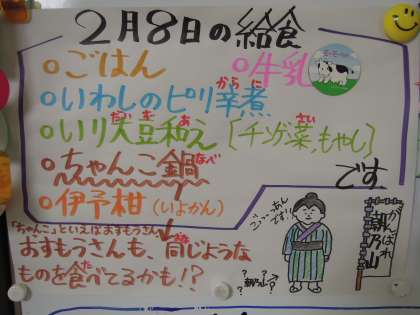 2月8日の給食
ごはん
牛乳
いわしのピリ辛煮
から に
いり大豆和え [チンゲン菜,もやし]
だいず あ さい
ちゃんこ鍋
なべ
伊予柑(いよかん)
です
「ちゃんこ」といえばおすもうさん
おすもうさんも、同じような
おな
ものを食べてるかも!?
た
ごっつぁんです!!
がんばれ
朝乃山